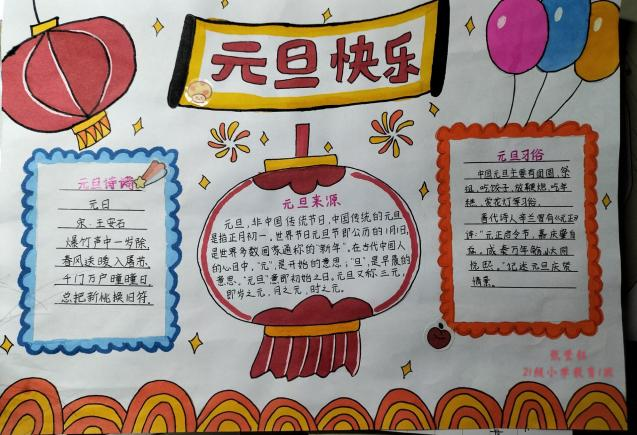 元旦快乐
元旦诗词
元日
宋·王安石
爆竹声中一岁除,
春风送暖入屠苏.
千门万户曈曈日,
总把新桃换旧符.
元旦来源
元旦,非中国传统节日,中国传统的元旦
是指正月初一,世界节日元旦节即公历的1月1日,
是世界多数国家通称的“新年”。在古代中国人
的心目中,“元”,是开始的意思;“旦”,是早晨的
意思。“元旦”意即初始之日,元旦又称三元,
即岁之元,月之元,时之元。
元旦习俗
中国元旦主要有团圆,祭
祖,吃饺子,放鞭炮,吃年
糕,赏花灯等习俗。
晋代诗人辛兰曾有《元正》
诗:“元正启令节,嘉庆肇自
兹。咸奏万年觞,小大同
悦熙。”记述元旦庆贺
情景。
21级小学教育1班